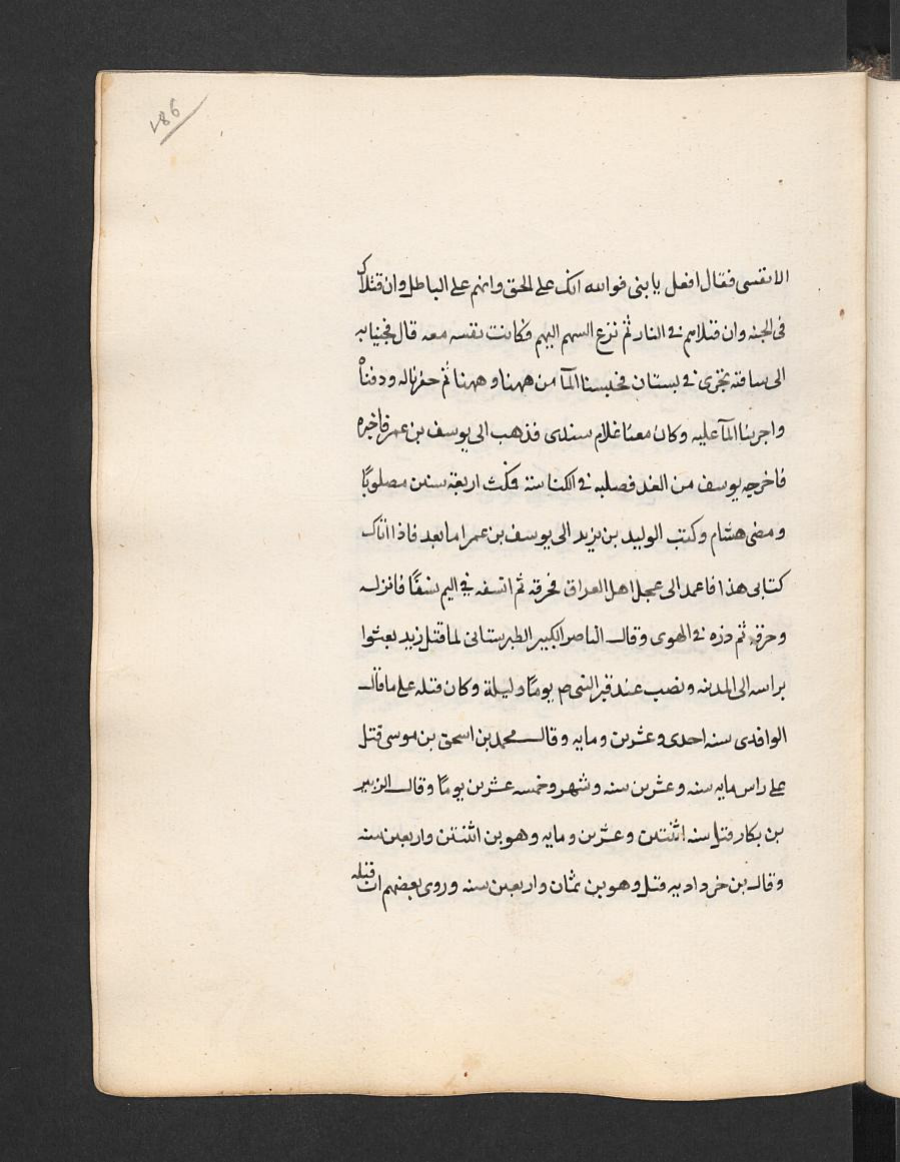 186
الا نفسى فقال افعل يا بنى فوالله انك على الحق وانهم على الباطل وان قتلاك
فى الجنه وان قتلاهم فى النار ثم نزع السهم اليهم فكانت نفسه معه قال فجينا به
الى ساقته تجرى فى بستان فحبسنا المآ من ههنا و ههنا ثم حفرنا له ودفناه
واجرينا المآ عليه وكان معنا غلام سندى فذهب الى يوسف بن عمر فاخبره
فاخرجه يوسف من الغد فصلبه فى الكناسة فمكث اربعة سنين مصلوبًا
ومضى هشام وكتب الوليد بن يزيد الى يوسف بن عمر اما بعد فاذا اتاك
كتابى هذا فاعمد الى عجل اهل العراق فحرقه ثم انسفه فى اليم نسفًا فانزله
وحرقه ثم ذره فى الهوى وقال الناصر الكبير الطبرستانى لما قتل زيد بعثوا
براسه الى المدينه ونصب عند قبر النبى صم يومًا وليلة وكان قتله على ما قال
الواقدى سنه احدى وعشرين ومايه وقال محمد بن اسحق بن موسى قتل
على راس مايه سنه وعشرين سنه وشهر وخمسه عشرين يومًا وقال الزبير
بن بكار قتل سنه اثنتين وعشرين ومايه وهو بن اثنتين واربعين سنه
وقال بن خرداد به قتل وهو بن ثمان واربعين سنه وروى بعضهم ان قتله